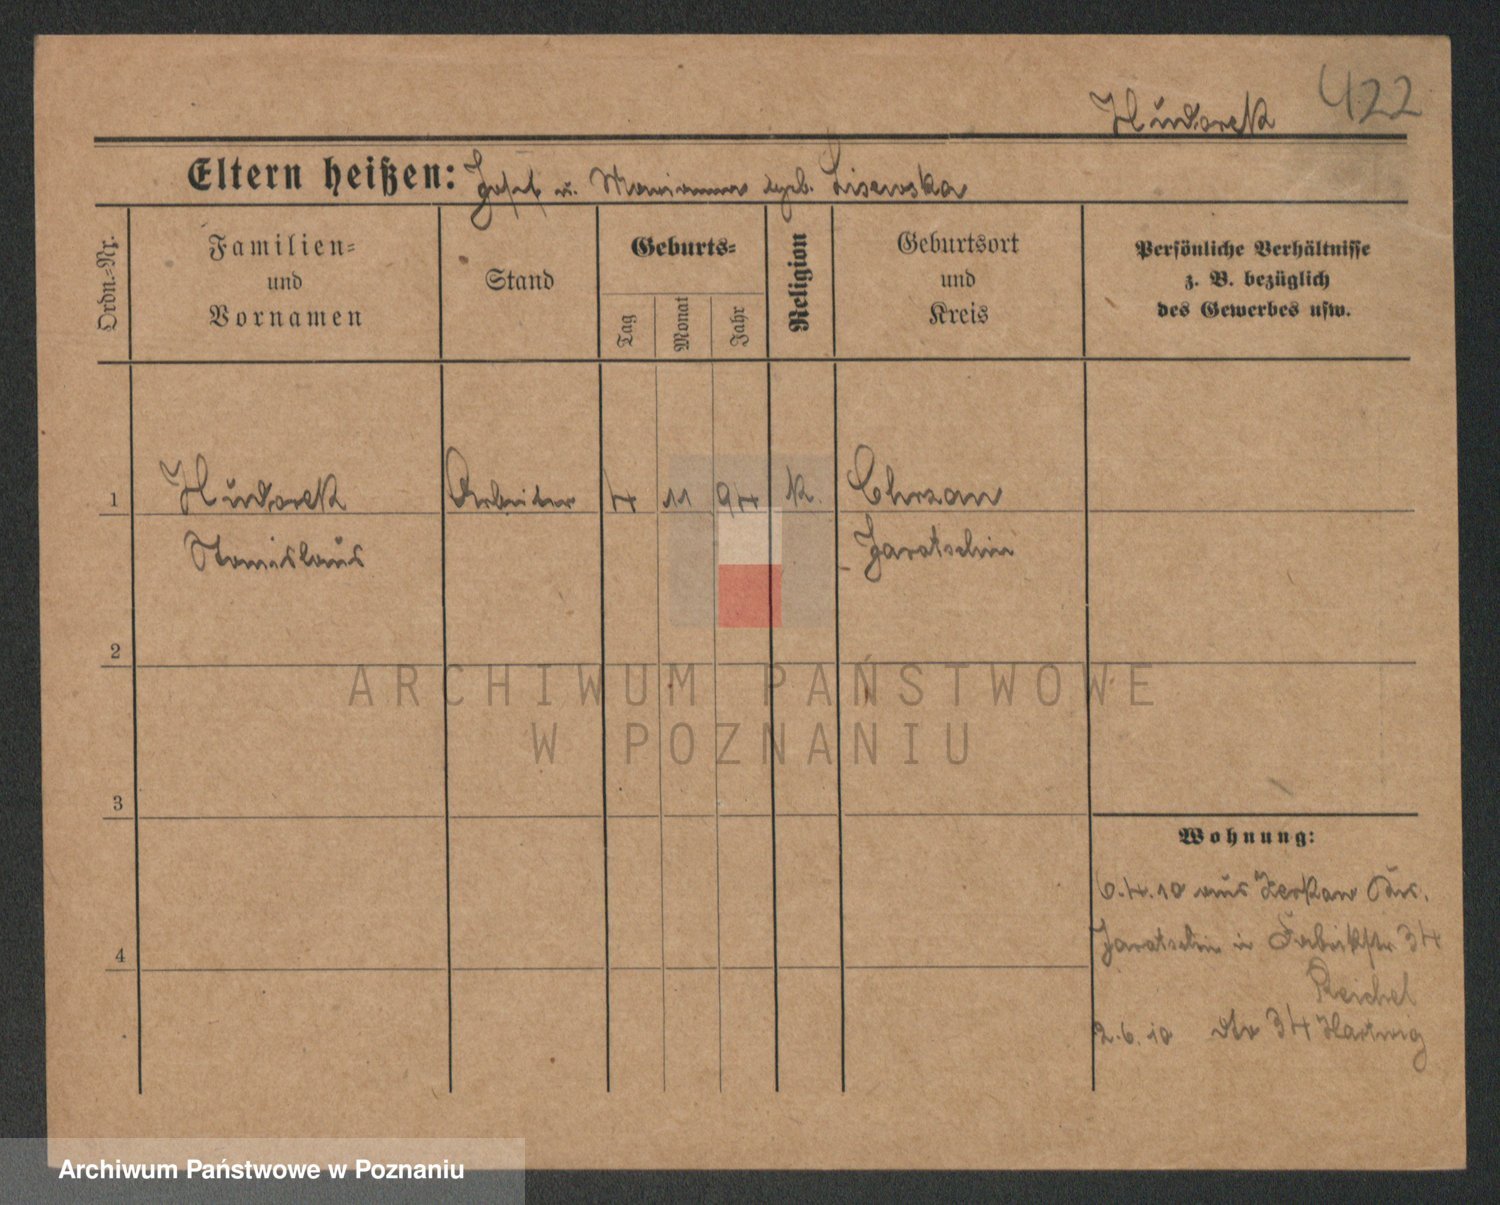 422
Hudarek
Eltern heißen: Josef u. Marianna geb. Lisewska
Ordn.-Nr.
Familien-
und
Vornamen
Stand
Geburts-
Tag
Monat
Jahr
Religion
Geburtsort
und
Kreis
Persönliche Verhältnisse
z. B. bezüglich
des Gewerbes usw.
1 Hudarek Arbeiter 4 11 94 K. Chrzan
Stanislaus Jarotschin
2
3
4
Wohnung:
6.4.10 aus Zerkow Krs.
Jarotschin in Fabrikstr 34
Reichel
2.6.10 dto 34 Hartwig
ARCHIWUM PAŃSTWOWE
W POZNANIU
Archiwum Państwowe w Poznaniu